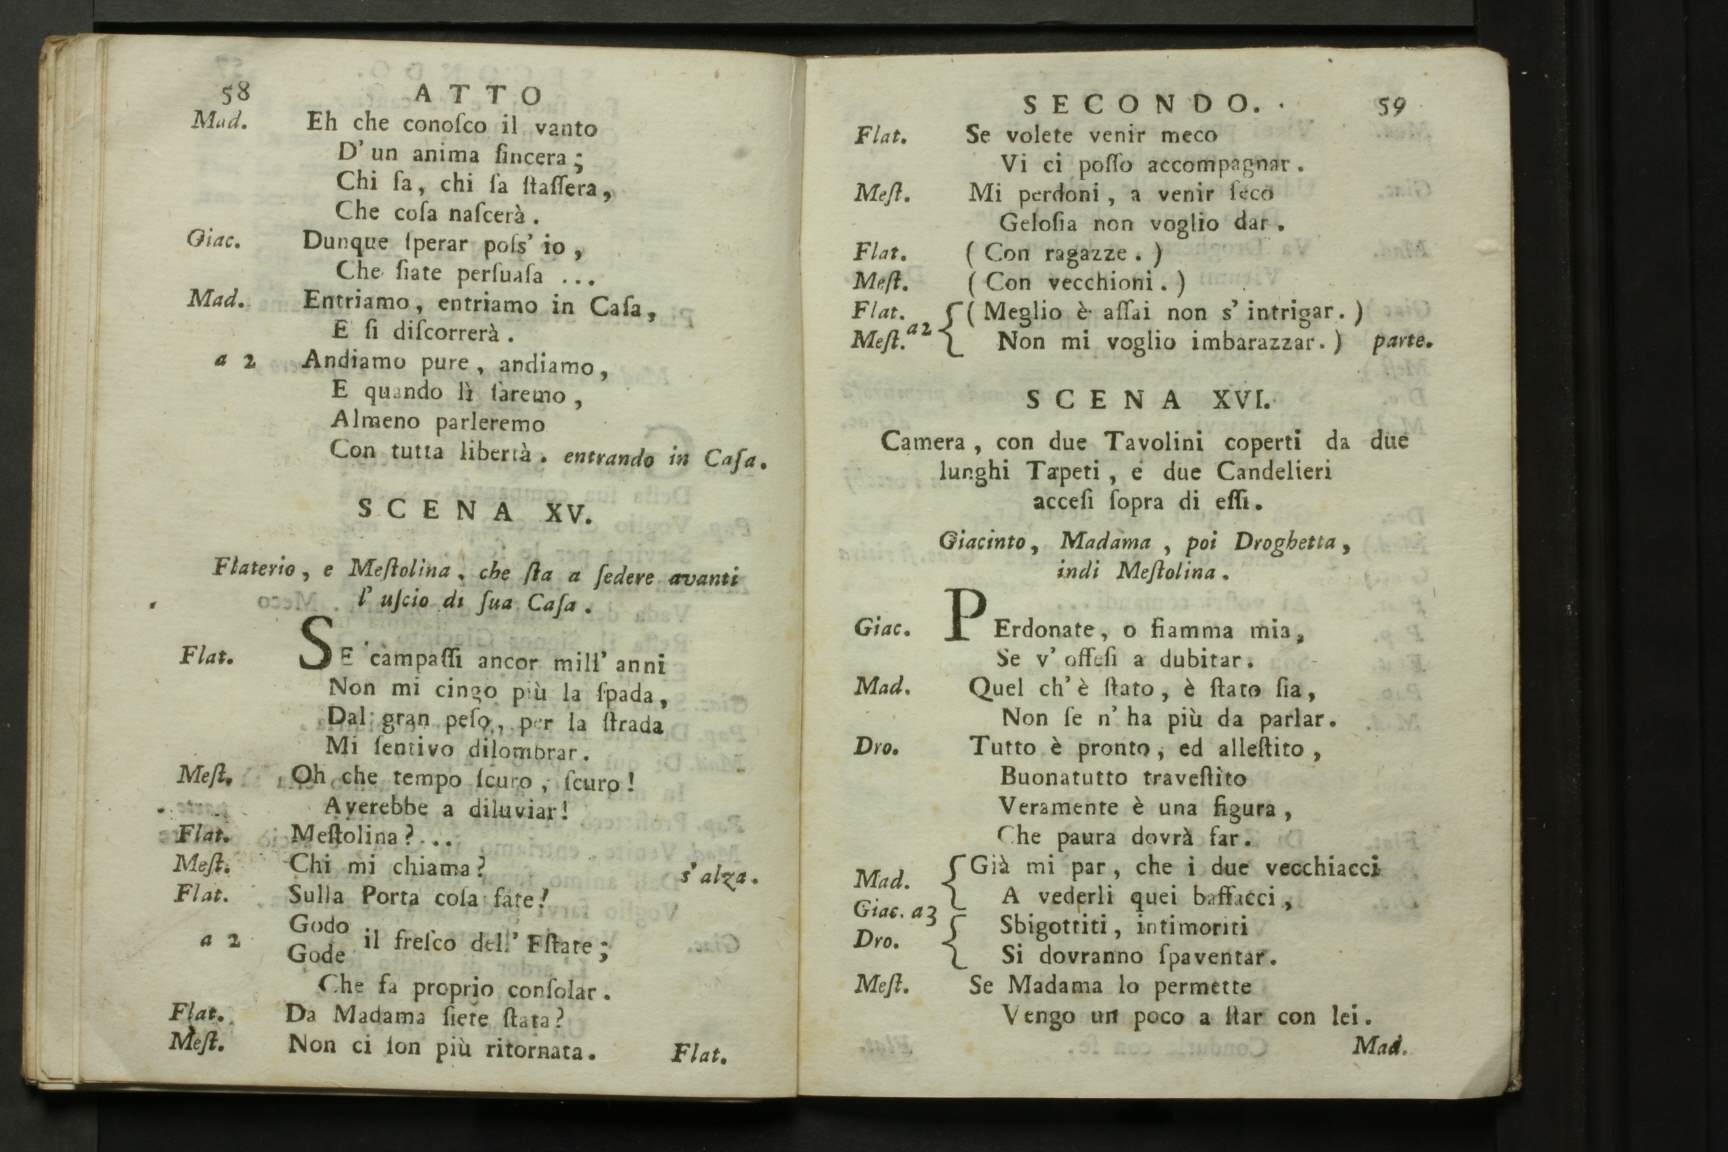 58 ATTO
Mad. Eh che conoſco il vanto
D' un anima ſincera;
Chi ſa, chi ſa ſtaſſera,
Che coſa naſcerà.
Giac. Dunque ſperar poſs' io,
Che ſiate perſuaſa ...
Mad. Entriamo, entriamo in Caſa,
E ſi diſcorrerà.
a 2 Andiamo pure, andiamo,
E quando lì ſaremo,
Almeno parleremo
Con tutta libertà. entrando in Caſa.
SCENA XV.
Flaterio, e Meſtolina, che ſta a ſedere avanti
l' uſcio di ſua Caſa.
Flat. SE campaſſi ancor mill' anni
Non mi cingo più la ſpada,
Dal gran peſo, per la ſtrada
Mi ſentivo dilombrar.
Meſt. Oh che tempo ſcuro, ſcuro!
Averebbe a diluviar!
Flat. Meſtolina? ...
Meſt. Chi mi chiama? s' alza.
Flat. Sulla Porta coſa fate?
Godo
a 2 il freſco dell' Eſtate;
Gode
Che fa proprio conſolar.
Flat. Da Madama ſiete ſtata?
Meſt. Non ci ſon più ritornata.
Flat.
SECONDO. 59
Flat. Se volete venir meco
Vi ci poſſo accompagnar.
Meſt. Mi perdoni, a venir ſeco
Geloſia non voglio dar.
Flat. (Con ragazze.)
Meſt. (Con vecchioni.)
Flat. { (Meglio è aſſai non s' intrigar.)
Meſt. a2 { Non mi voglio imbarazzar.) parte.
SCENA XVI.
Camera, con due Tavolini coperti da due
lunghi Tapeti, e due Candelieri
acceſi ſopra di eſſi.
Giacinto, Madama, poi Droghetta,
indi Meſtolina.
Giac. PErdonate, o fiamma mia,
Se v' offeſi a dubitar.
Mad. Quel ch' è ſtato, è ſtato ſia,
Non ſe n' ha più da parlar.
Dro. Tutto è pronto, ed alleſtito,
Buonatutto traveſtito
Veramente è una figura,
Che paura dovrà far.
Mad. { Già mi par, che i due vecchiacci
A vederli quei baffacci,
Giac. a3 { Sbigottiti, intimoriti
Dro. Si dovranno ſpaventar.
Meſt. Se Madama lo permette
Vengo un poco a ſtar con lei.
Mad.